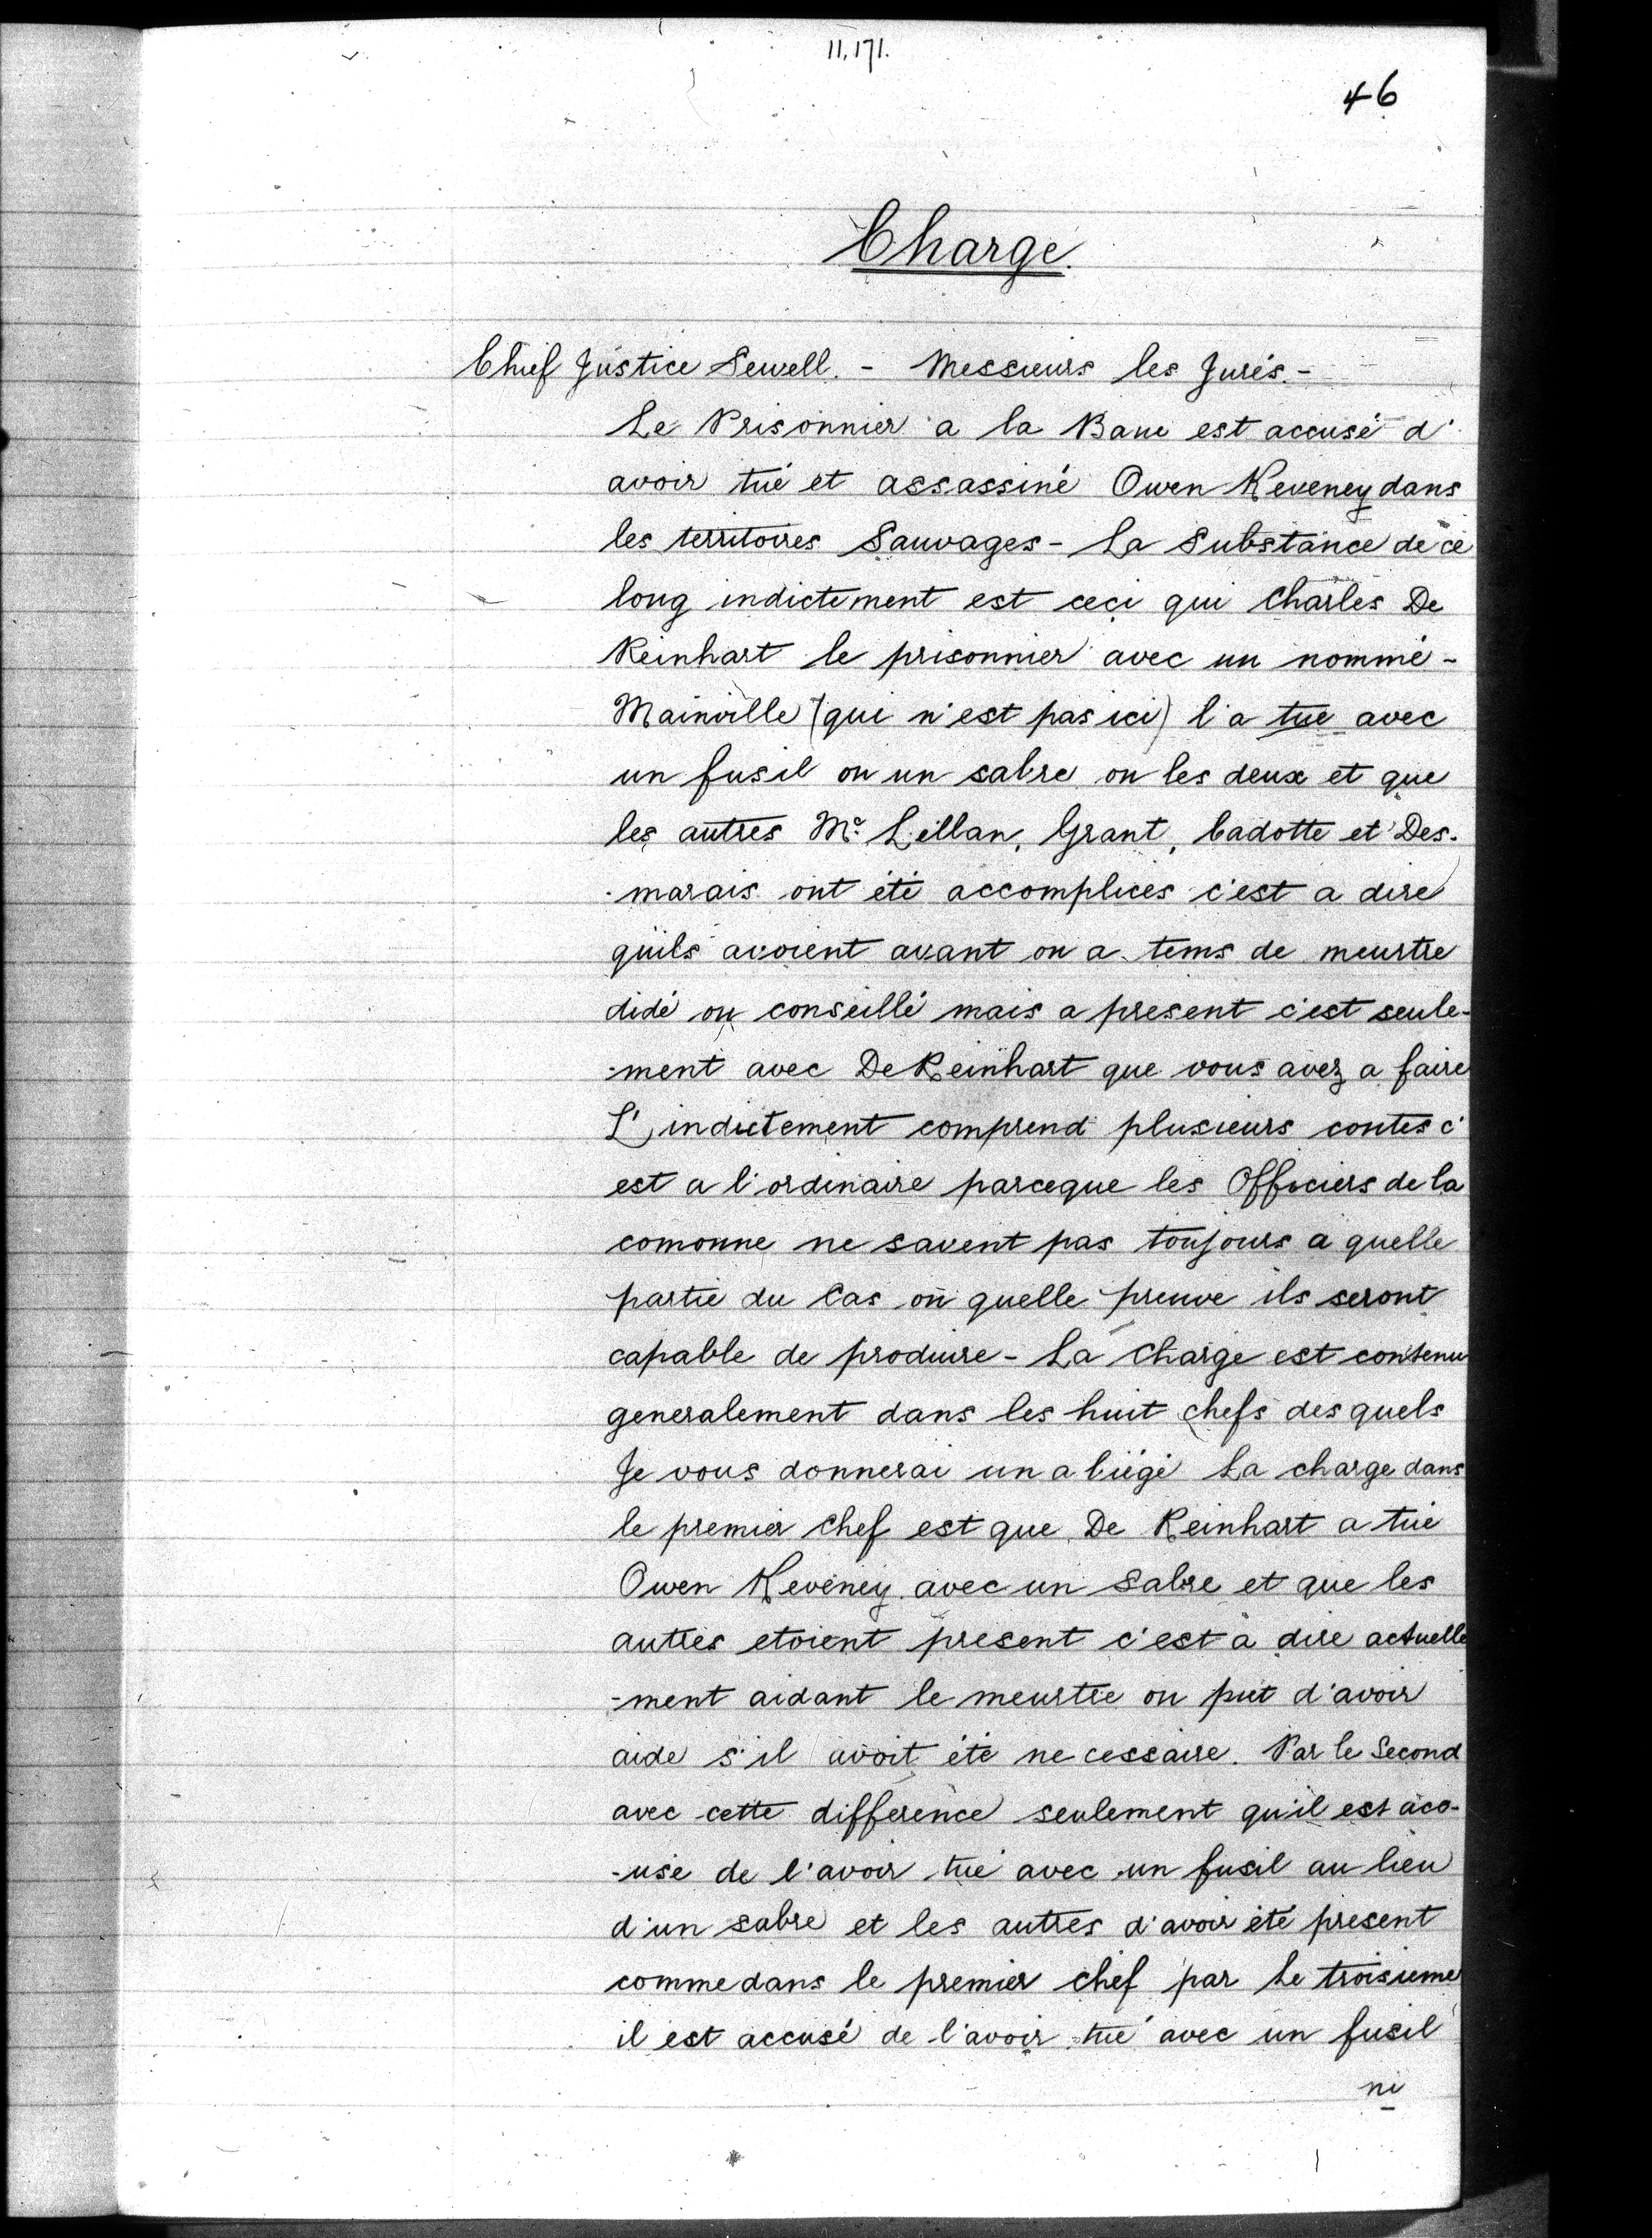 11,171.
46
Charge.
Chief Justice Sewell. - Messieurs les Jurés.-
Le Prisonnier a la Baue est accusé d'
avoir tué et assassiné Owen Keveney dans
les territoires Sauvages - La Substance de ce
long indictement est ceci qui Charles De
Reinhart le prisonnier avec un nommé -
Mainville (qui n'est pas ici) l'a tue avec
un fusil ou un sabre ou les deux et que
les autres Mc Lellan, Grant, Cadotte et Des-
-marais ont été accomplices c'est a dire
qu'ils avoient avant ou a tems de meurtre
didé ou conseillé mais a present c'est seule-
-ment avec De Reinhart que vous avez a faire
L'indictement comprend plusieurs contes c'
est a l'ordinaire parceque les Officiers de la
comonne ne savent pas toujours a quelle
partie du Cas ou quelle preuve ils seront
capable de produire - La Charge est contenu
generalement dans les huit chefs des quels
Je vous donnerai un a biégé La charge dans
le premier Chef est que De Reinhart a tué
Owen Keveney avec un Sabre et que les
autres etoient present c'est à dire actuelle
-ment aidant le meurtre ou put d'avoir
aide s'il avoit été ne cessaire. Par le Second
avec cette difference seulement qu'il est acc-
-usé de l'avoir tué avec un fusil au lieu
d'un sabre et les autres d'avoir été present
comme dans le premier chef par le troisieme
il est accusé de l'avoir tué avec un fusil
ni